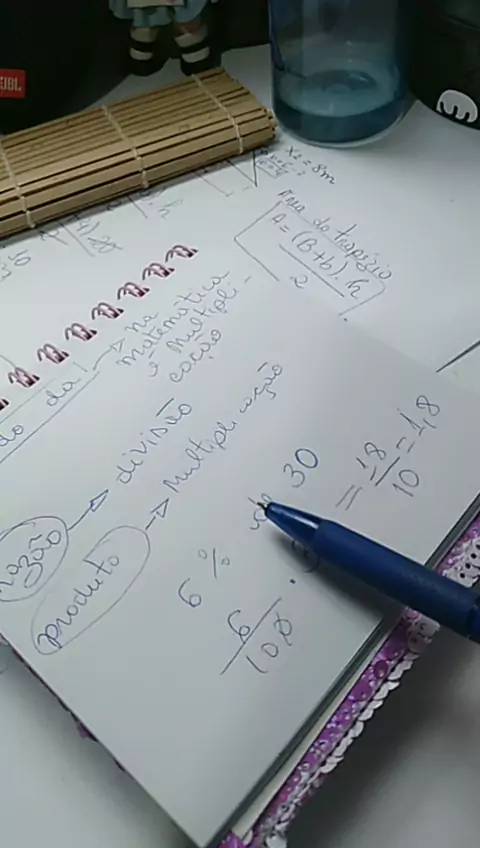 JBL
x2 = 8m
Área do trapézio
A = (B+b).h
2
do da
→ na
matemática
é Multipli-
cação
razão → divisão
produto → Multiplicação
6 % de 30
6
100
= 18
10
= 1,8